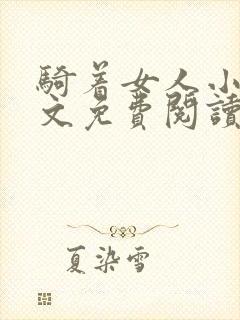 騎着女人小
文免費閱讀
夏染雪